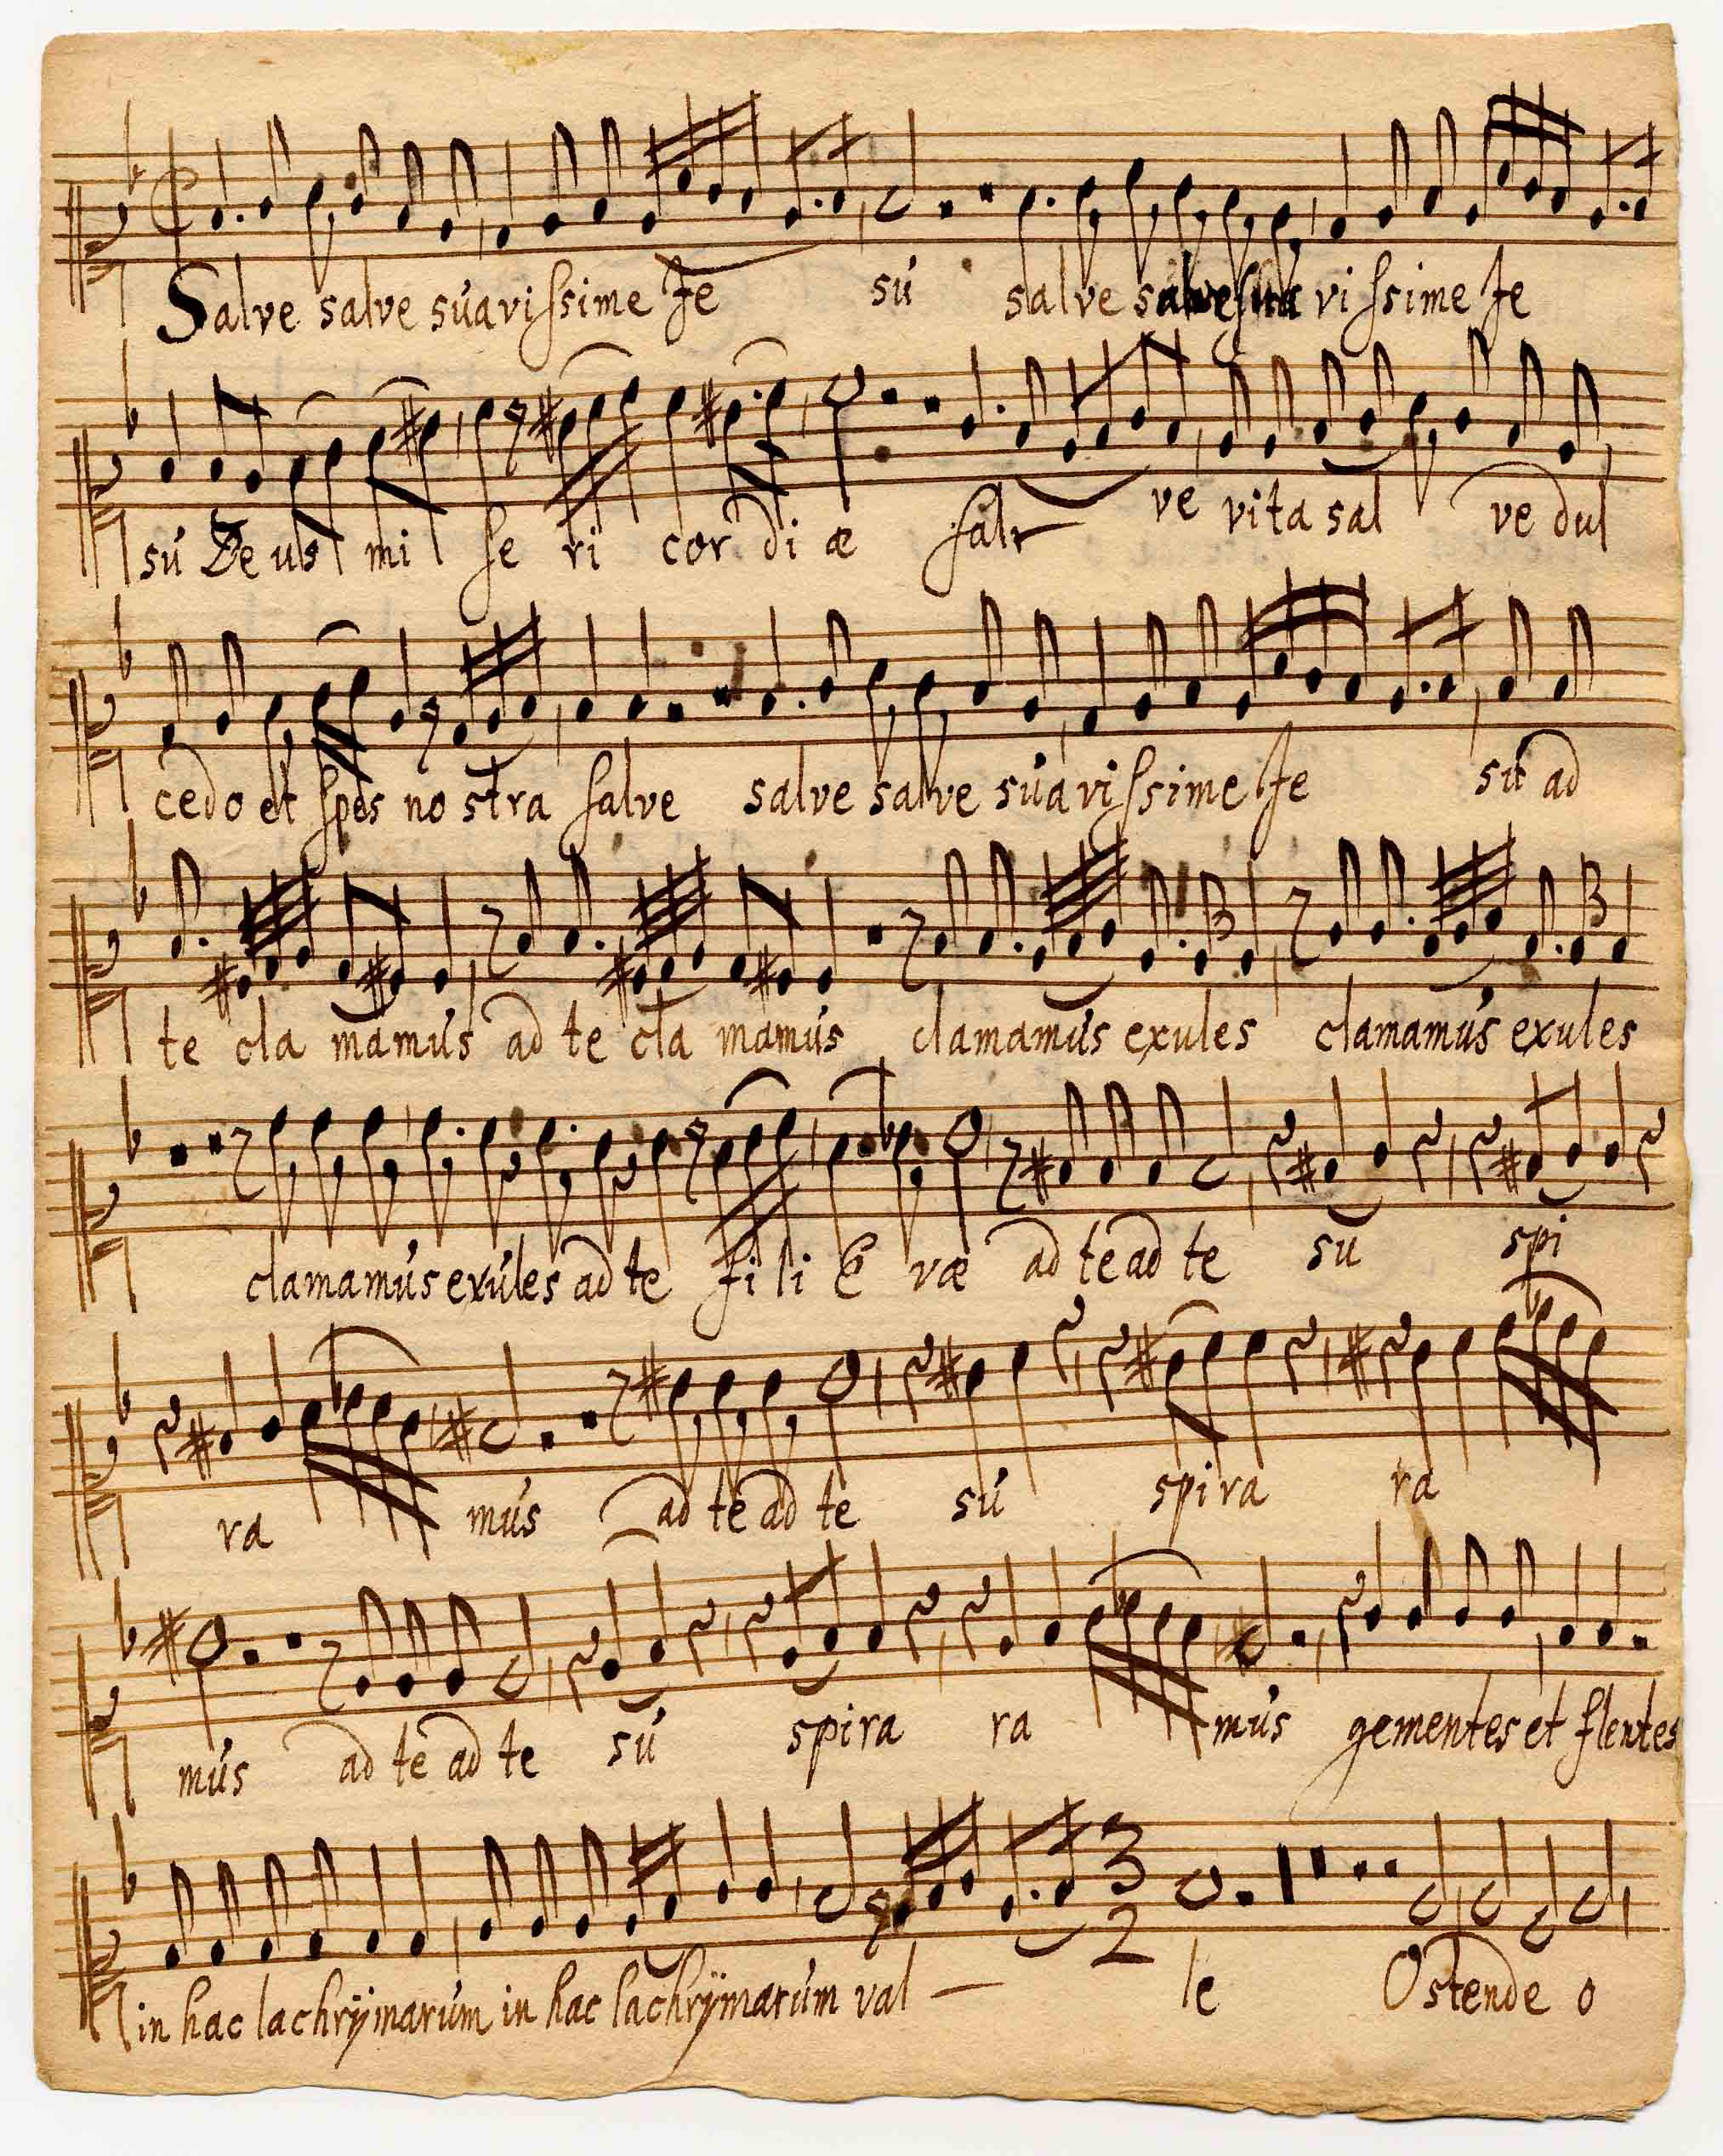 Salve salve súavissime Je sú salve salve súa vissime Je
sú De us mi se ri cor di æ salv ve vita sal ve dul
cedo et spes no stra salve salve salve súavissime Je sú ad
te cla mamús ad te cla mamús clamamús exules clamamús exules
clamamús exúles ad te fi li E væ ad te ad te su spi
ra mús ad te ad te sú spi ra ra
mús ad te ad te sú spira ra mús gementes et flentes
3 2
in hac lachrÿmarúm in hac lachrÿmarúm val — le Ostende o